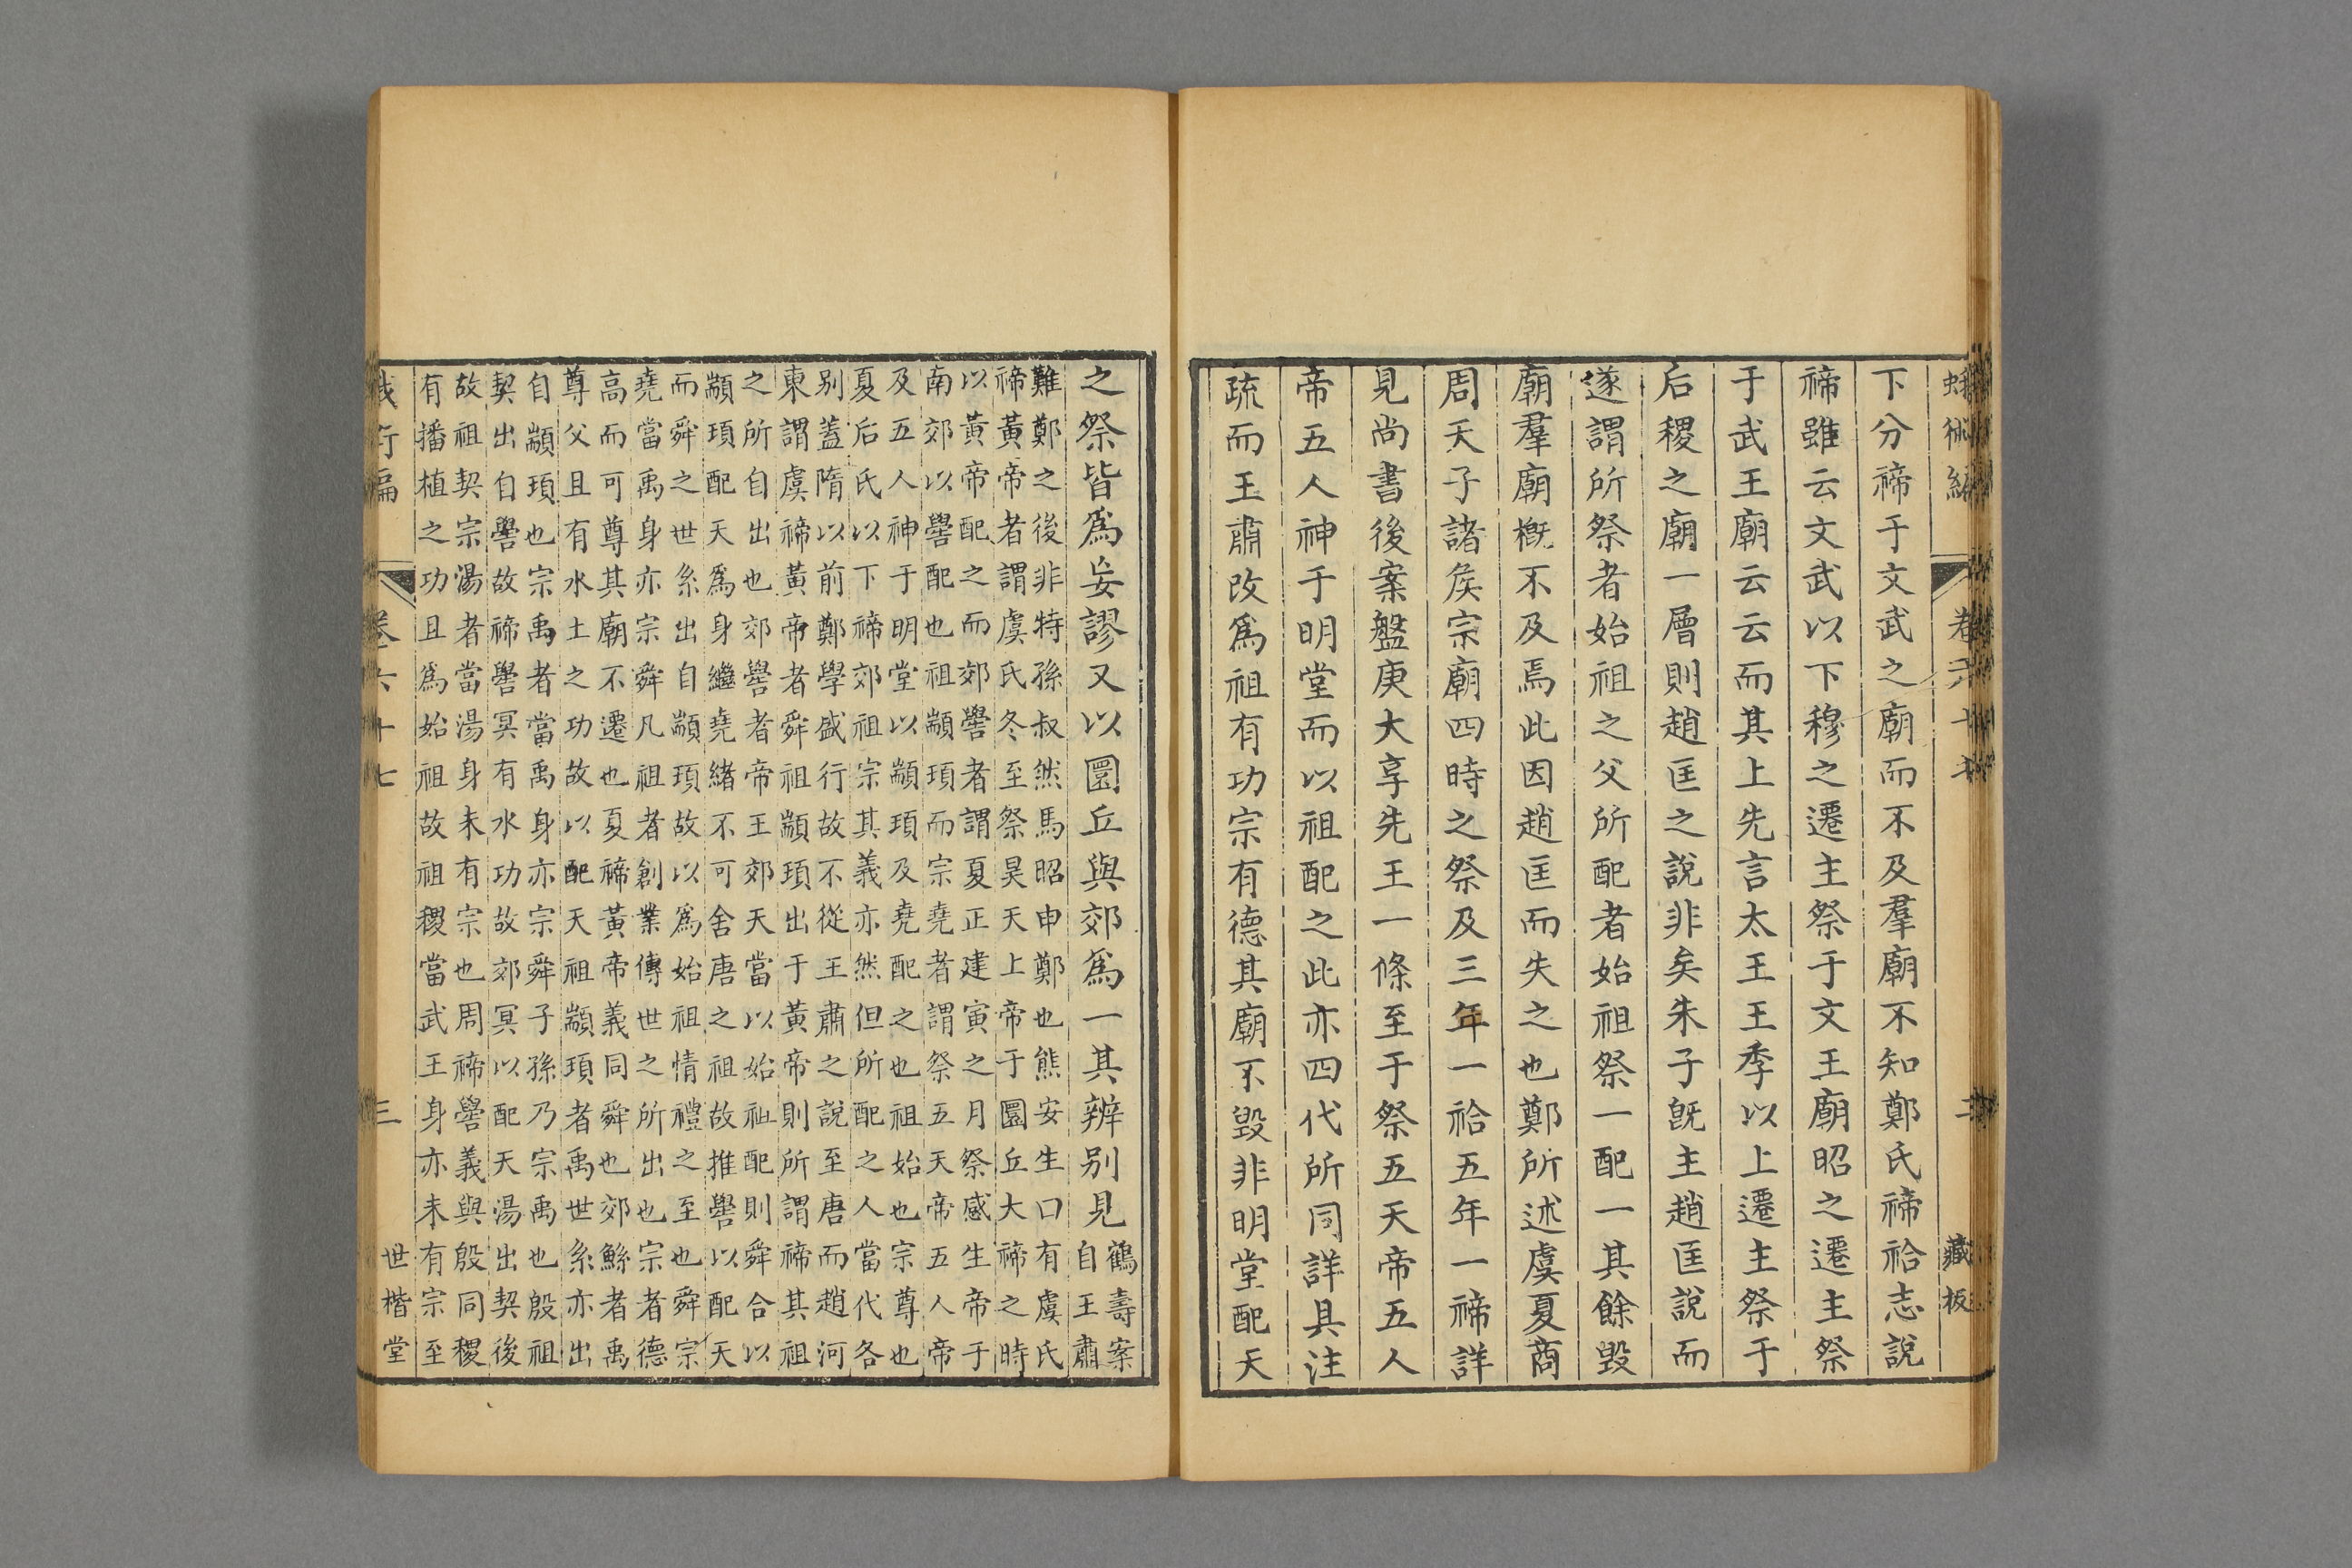 蛾術編 卷六十七 二 藏板
下分禘于文武之廟而不及羣廟不知鄭氏禘祫志說
禘雖云文武以下穆之遷主祭于文王廟昭之遷主祭
于武王廟云云而其上先言太王王季以上遷主祭于
后稷之廟一層則趙匡之說非矣朱子旣主趙匡說而
遂謂所祭者始祖之父所配者始祖祭一配一其餘毀
廟羣廟槪不及焉此因趙匡而失之也鄭所述虞夏商
周天子諸侯宗廟四時之祭及三年一祫五年一禘詳
見尚書後案盤庚大享先王一條至于祭五天帝五人
帝五人神于明堂而以祖配之此亦四代所同詳具注
疏而王肅改爲祖有功宗有德其廟不毀非明堂配天
之祭皆爲妄謬又以圜丘與郊爲一其辨別見鶴壽案自王肅
難鄭之後非特孫叔然馬昭申鄭也熊安生口有虞氏
禘黃帝者謂虞氏冬至祭昊天上帝于圜丘大禘之時
以黃帝配之而郊嚳者謂夏正建寅之月祭感生帝于
南郊以嚳配也祖顓頊而宗堯者謂祭五天帝五人帝
及五人神于明堂以顓頊及堯配之也祖始也宗尊也
夏后氏以下禘郊祖宗其義亦然但所配之人當代各
別蓋隋以前鄭學盛行故不從王肅之說至唐而趙河
東謂虞禘黃帝者舜祖顓頊出于黃帝則所謂禘其祖
之所自出也郊嚳者帝王郊天當以始祖配則舜合以
顓頊配天爲身繼堯緒不可舍唐之祖故推嚳以配天
而舜之世系出自顓頊故以爲始祖情禮之至也舜宗
堯當禹身亦宗舜凡祖者創業傳世之所出也宗者德
高而可尊其廟不遷也夏禘黃帝義同舜也郊鯀者禹
尊父且有水土之功故以配天祖顓頊者禹世系亦出
自顓頊也宗禹者當禹身亦宗舜子孫乃宗禹也殷祖
契出自嚳故禘嚳冥有水功故郊冥以配天湯出契後
故祖契宗湯者當湯身未有宗也周禘嚳義與殷同稷
有播植之功且爲始祖故祖稷當武王身亦未有宗至
蛾術編 卷六十七 三 世楷堂